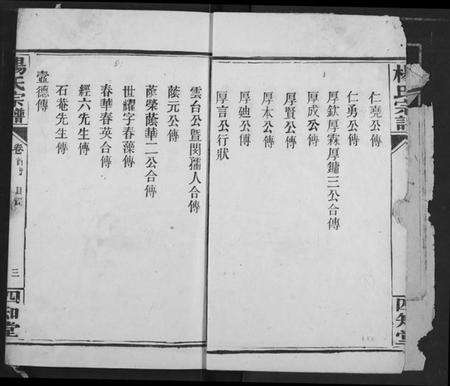 楊氏宗譜
四知堂
仁堯公傳
仁勇公傳
厚欽厚霖厚鏞三公合傳
厚成公傳
厚賢公傳
厚本公傳
厚迪公傳
厚言公行狀
雲台公暨閔孺人合傳
蔭元公傳
蔭榮蔭華二公合傳
世耀字春藻傳
春華春英合傳
經六先生傳
石菴先生傳
壼德傳
楊氏宗譜
卷首 目錄
三
四知堂